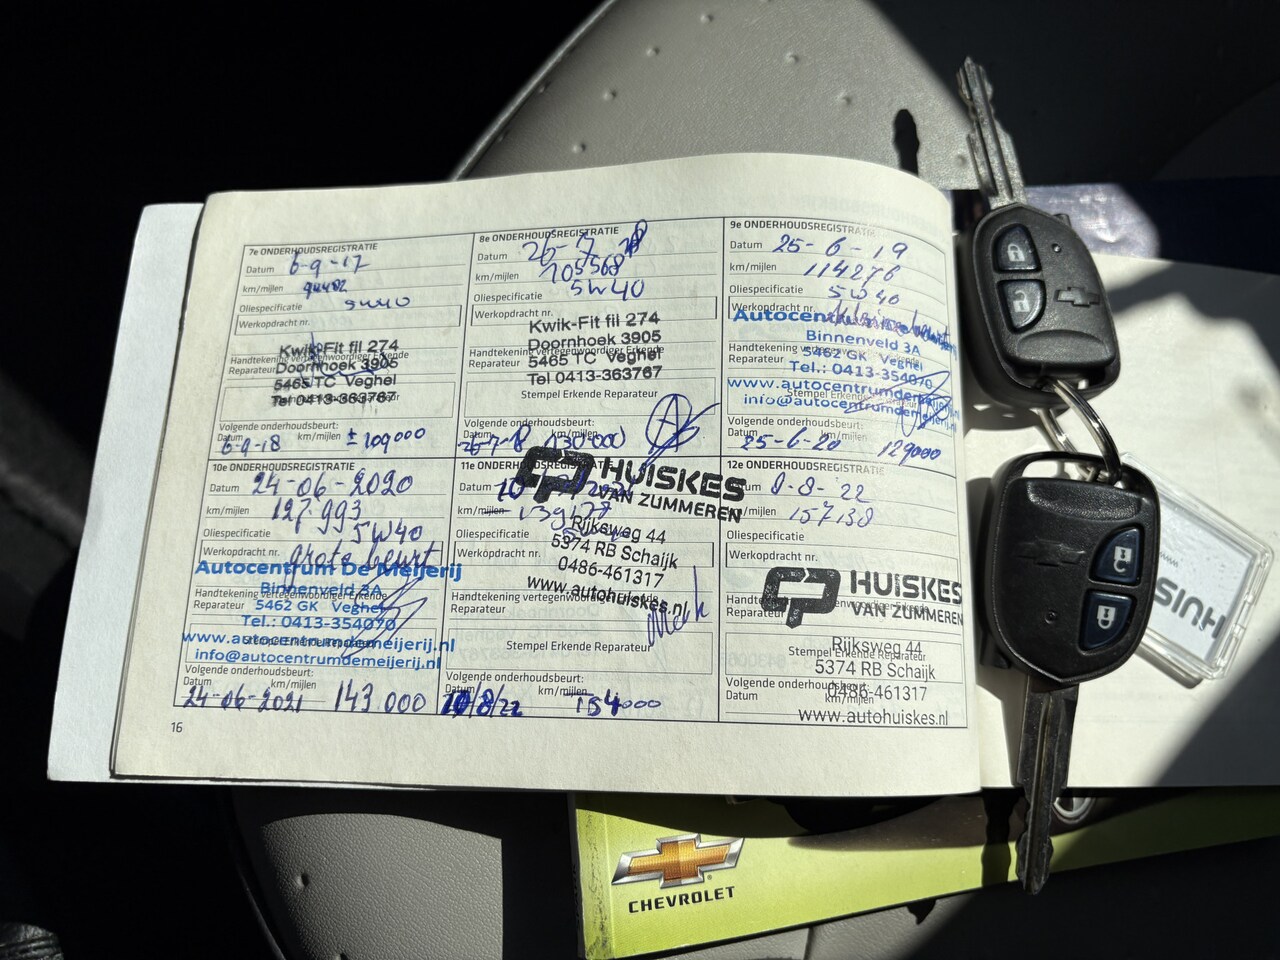 7e ONDERHOUDSREGISTRATIE
Datum 6-9-17
km/mijlen
Oliespecificatie 5W40
Werkopdracht nr.
Kwik-Fit fil 274
Handtekening vertegenwoordiger Erkende
Reparateur
Doornhoek 3905
5465 TC Veghel
Tel 0413-363767
Volgende onderhoudsbeurt:
Datum km/mijlen
6-9-18 ± 109000
8e ONDERHOUDSREGISTRATIE
Datum 26-7 18
km/mijlen 105568
Oliespecificatie 5W40
Werkopdracht nr.
Kwik-Fit fil 274
Doornhoek 3905
Handtekening vertegenwoordiger Erkende
Reparateur
5465 TC Veghel
Tel 0413-363767
Stempel Erkende Reparateur
Volgende onderhoudsbeurt:
Datum km/mijlen
130000
9e ONDERHOUDSREGISTRATIE
Datum 25-6-19
km/mijlen 114276
Oliespecificatie 5W40
Werkopdracht nr.
Binnenveld 3A
Handtekening vertegenwoordiger Erkende
Reparateur
5462 GK Veghel
Tel.: 0413-354070
Stempel Erkende Reparateur
Volgende onderhoudsbeurt:
Datum km/mijlen
25-6-20 129000
10e ONDERHOUDSREGISTRATIE
Datum 24-06-2020
km/mijlen 127.993
Oliespecificatie 5W40
Werkopdracht nr. grote beurt
Autocentrum De Meijerij
Binnenveld 3A
Handtekening vertegenwoordiger Erkende
Reparateur
5462 GK Veghel
Tel.: 0413-354070
Stempel Erkende Reparateur
www.autocentrumdemeijerij.nl
info@autocentrumdemeijerij.nl
Volgende onderhoudsbeurt:
Datum km/mijlen
24-06-2021 143000
11e ONDERHOUDSREGISTRATIE
HUISKES
VAN ZUMMEREN
Datum
km/mijlen
Oliespecificatie
Rijksweg 44
Werkopdracht nr.
5374 RB Schaijk
0486-461317
www.autohuiskes.nl
Handtekening vertegenwoordiger Erkende
Reparateur
Stempel Erkende Reparateur
Volgende onderhoudsbeurt:
Datum km/mijlen
/8/22 154000
12e ONDERHOUDSREGISTRATIE
Datum 8-22
km/mijlen 157138
Oliespecificatie
Werkopdracht nr.
HUISKES
VAN ZUMMEREN
Handtekening vertegenwoordiger Erkende
Reparateur
Rijksweg 44
Stempel Erkende Reparateur
5374 RB Schaijk
Volgende onderhoudsbeurt:
Datum km/mijlen
0486-461317
www.autohuiskes.nl
16
HUIS
CHEVROLET